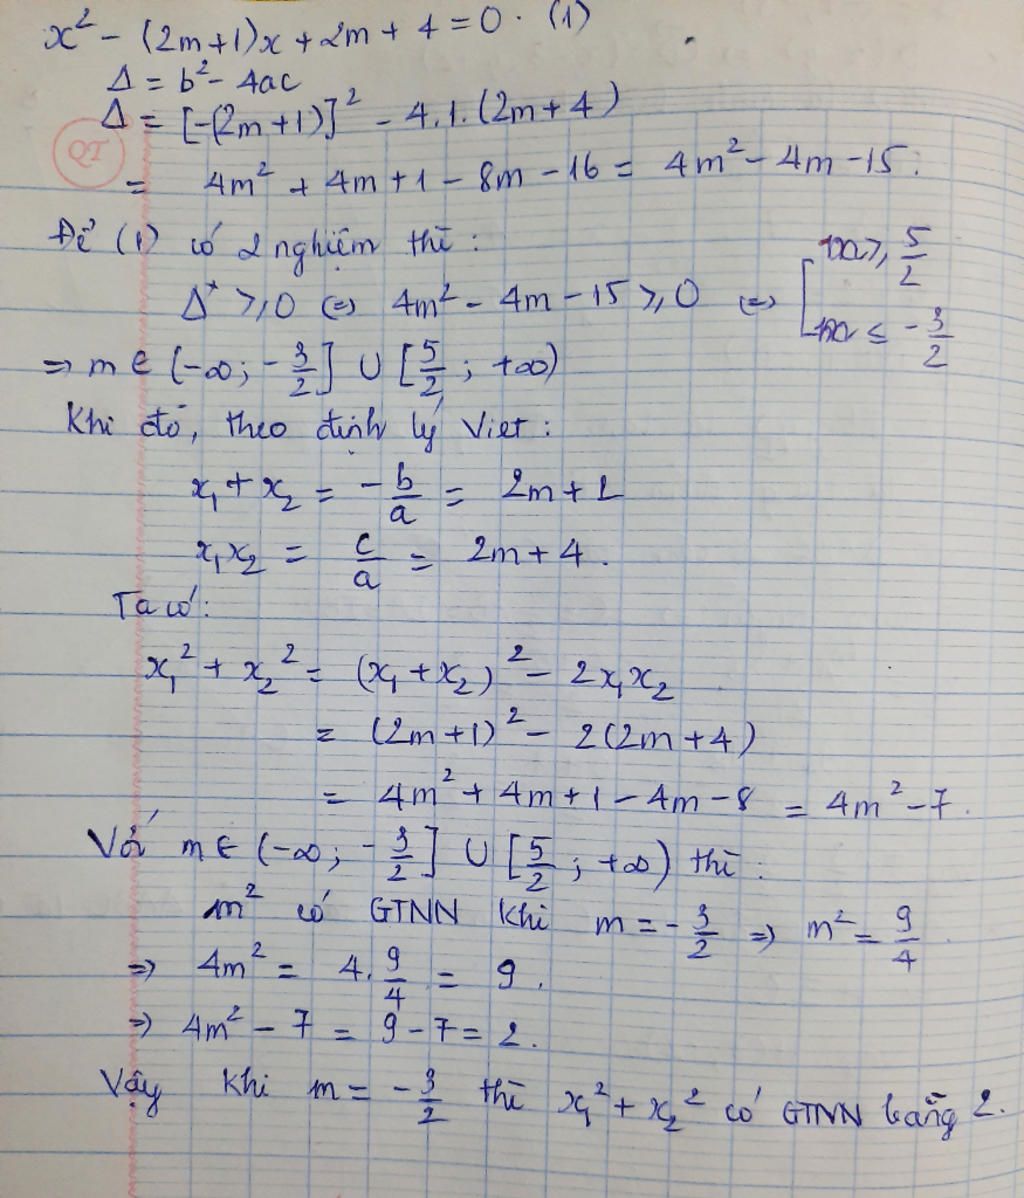 x² - (2m+1)x + 2m + 4 = 0. (1)
Δ = b² - 4ac
Δ = [-(2m+1)]² - 4.1.(2m+4)
QT
= 4m² + 4m + 1 - 8m - 16 = 4m² - 4m - 15.
Để (1) có 2 nghiệm thì:
Δ ≥ 0 (=) 4m² - 4m - 15 ≥ 0 (=) [ m ≥ 5/2
m ≤ -3/2
=> m ∈ (-∞; -3/2] ∪ [5/2; +∞)
Khi đó, theo định lý Viet:
x₁ + x₂ = -b/a = 2m + 1
x₁x₂ = c/a = 2m + 4.
Ta có:
x₁² + x₂² = (x₁ + x₂)² - 2x₁x₂
= (2m+1)² - 2(2m+4)
= 4m² + 4m + 1 - 4m - 8 = 4m² - 7.
Với m ∈ (-∞; -3/2] ∪ [5/2; +∞) thì:
m² có GTNN khi m = -3/2 => m² = 9/4
=> 4m² = 4.9/4 = 9.
=> 4m² - 7 = 9 - 7 = 2.
Vậy khi m = -3/2 thì x₁² + x₂² có GTNN bằng 2.